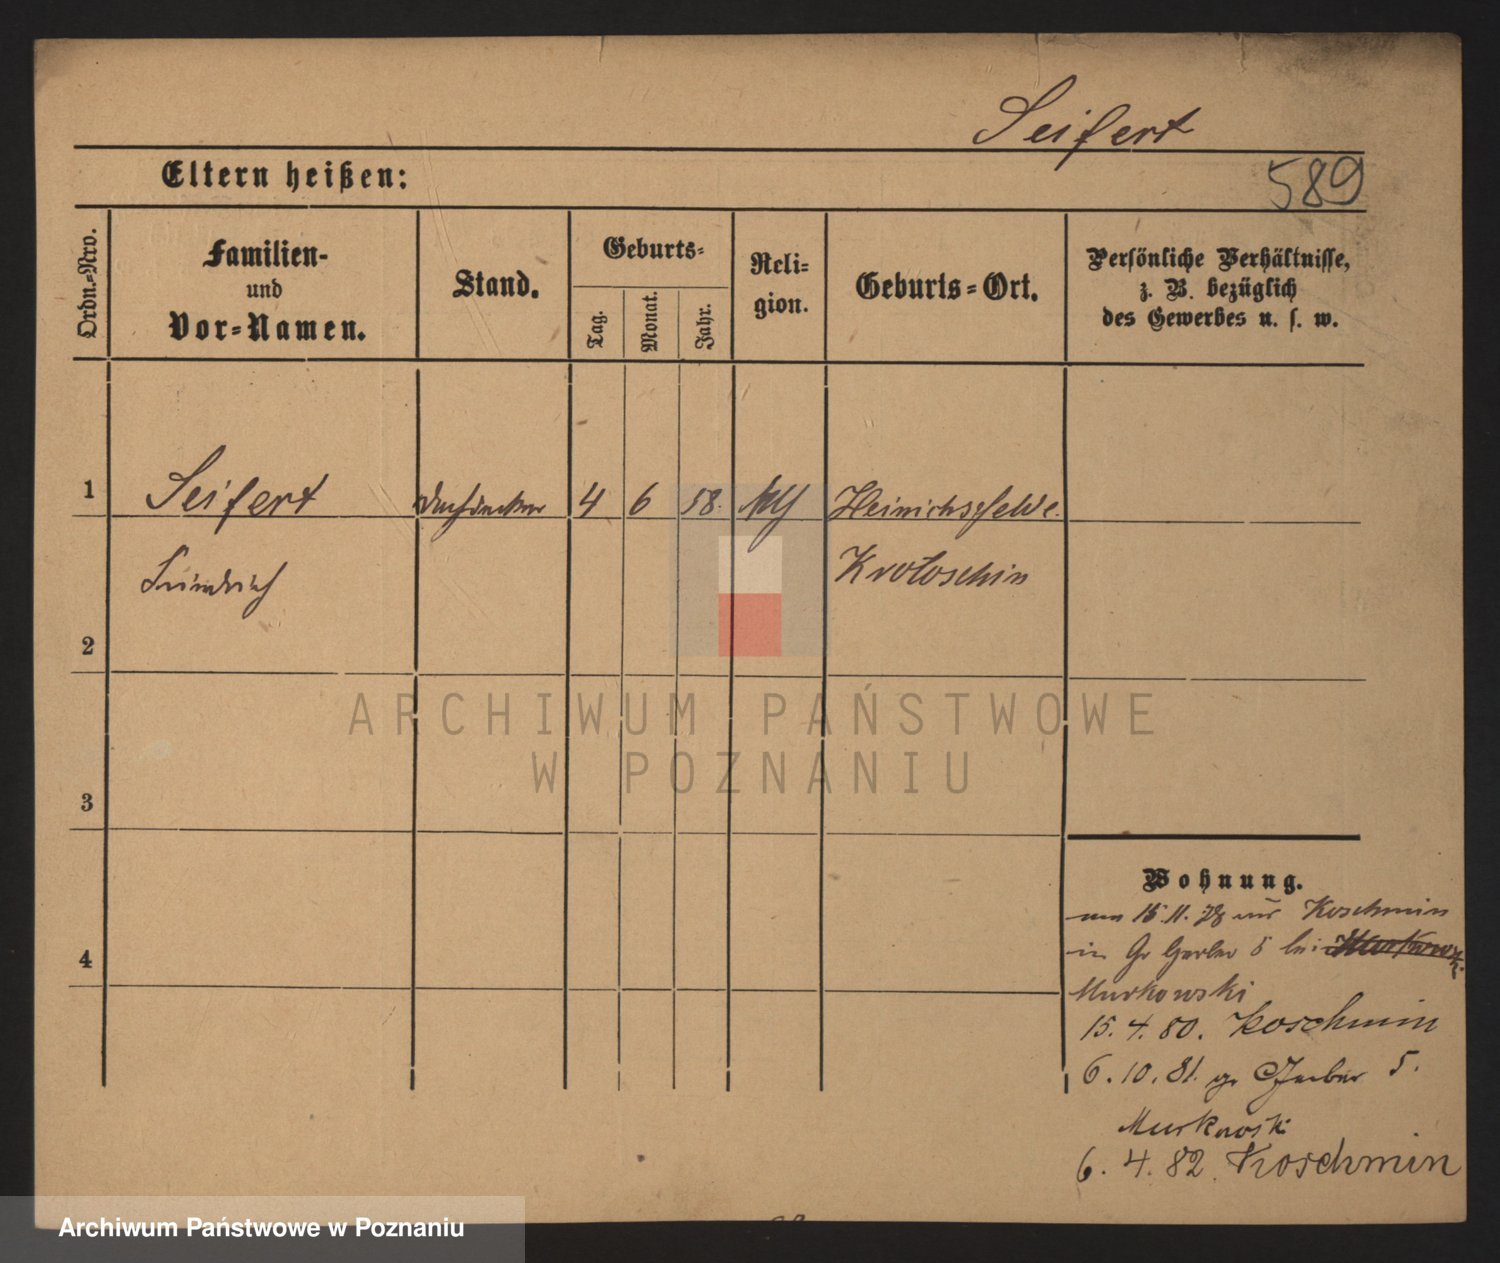 Seifert
Eltern heißen:
589
Ordn.-Nro.
Familien-
und
Vor-Namen.
Stand.
Geburts-
Tag.
Monat.
Jahr.
Reli-
gion.
Geburts-Ort.
Persönliche Verhältnisse,
z. B. bezüglich
des Gewerbes u. s. w.
1 Seifert Dachdecker 4 6 58. Heinrichsfelde.
Friedrich Krotoschin
2
3
4
ARCHIWUM PAŃSTWOWE
W POZNANIU
Wohnung.
15.11.78 aus Koschmin
in Gr Gerber 5 bei
Murkowski
15. 4. 80. Koschmin
6. 10. 81. gr Gerber 5.
Murkowski
6. 4. 82. Koschmin
Archiwum Państwowe w Poznaniu